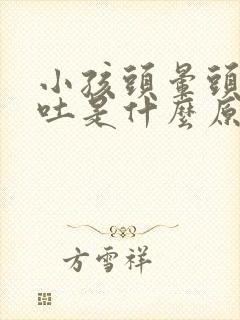 小孩頭暈頭
吐是什麼原
方雪祥